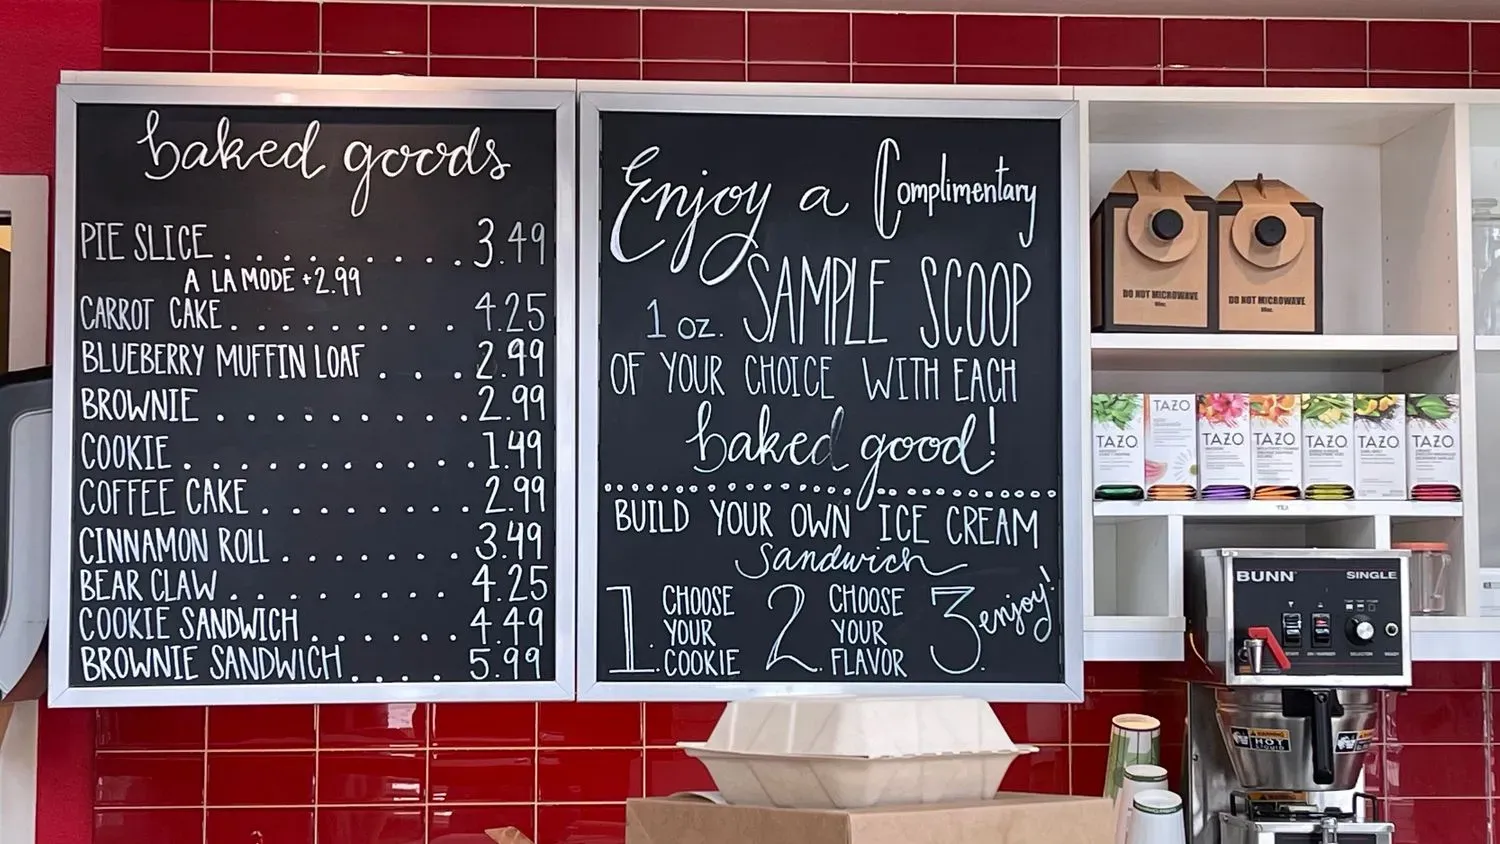 baked goods
PIE SLICE . . . . . . . . . . 3.49
A LA MODE +2.99
CARROT CAKE . . . . . . . . . 4.25
BLUEBERRY MUFFIN LOAF . . . 2.99
BROWNIE . . . . . . . . . . 2.99
COOKIE . . . . . . . . . . . 1.49
COFFEE CAKE . . . . . . . . 2.99
CINNAMON ROLL . . . . . . . 3.49
BEAR CLAW . . . . . . . . . 4.25
COOKIE SANDWICH . . . . . . 4.49
BROWNIE SANDWICH . . . . 5.99
Enjoy a Complimentary
1 oz. SAMPLE SCOOP
OF YOUR CHOICE WITH EACH
baked good!
BUILD YOUR OWN ICE CREAM
Sandwich
1. CHOOSE YOUR COOKIE
2. CHOOSE YOUR FLAVOR
3. enjoy!
DO NOT MICROWAVE
DO NOT MICROWAVE
TAZO
TAZO
TAZO
TAZO
TAZO
TAZO
TAZO
TEA
BUNN SINGLE
WARNING
HOT
LIQUID